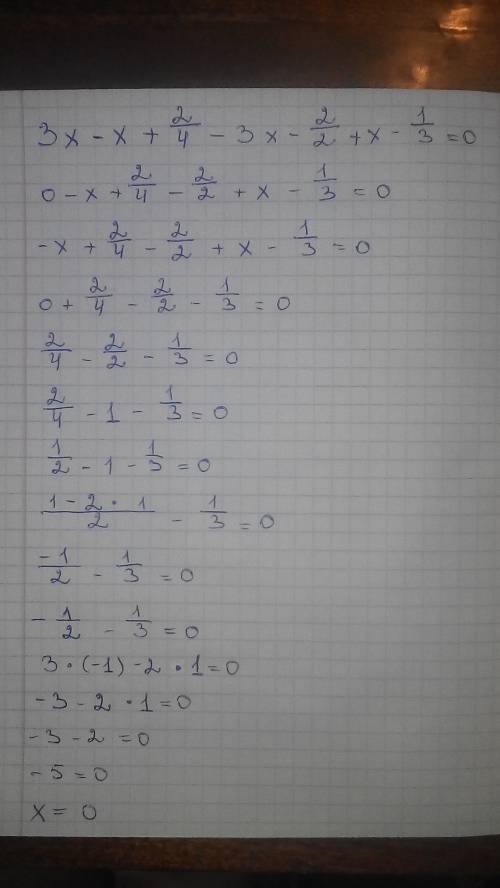 3x - x + 2/4 - 3x - 2/2 + x - 1/3 = 0
0 - x + 2/4 - 2/2 + x - 1/3 = 0
-x + 2/4 - 2/2 + x - 1/3 = 0
0 + 2/4 - 2/2 - 1/3 = 0
2/4 - 2/2 - 1/3 = 0
2/4 - 1 - 1/3 = 0
1/2 - 1 - 1/3 = 0
(1 - 2 · 1)/2 - 1/3 = 0
-1/2 - 1/3 = 0
- 1/2 - 1/3 = 0
3 · (-1) - 2 · 1 = 0
-3 - 2 · 1 = 0
-3 - 2 = 0
-5 = 0
x = 0